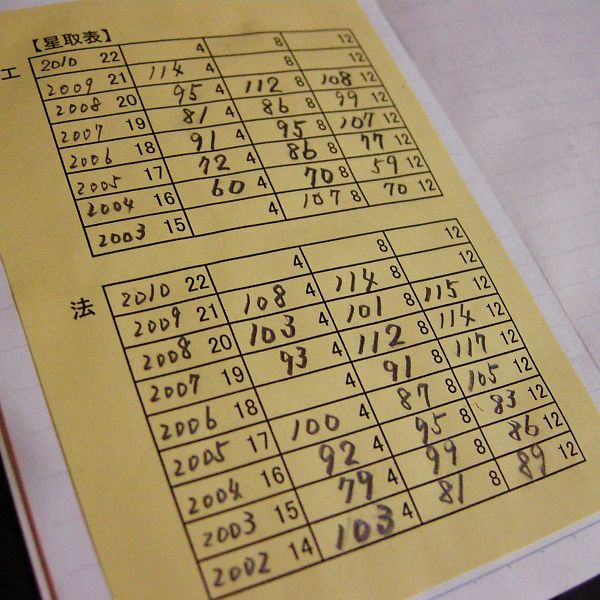 【星取表】
工
2010 22 4 8 12
2009 21 114 4 8 12
2008 20 95 4 112 8 108 12
2007 19 81 4 86 8 99 12
2006 18 91 4 95 8 107 12
2005 17 72 4 86 8 77 12
2004 16 60 4 70 8 59 12
2003 15 4 107 8 70 12
法
2010 22 4 8 12
2009 21 108 4 114 8 12
2008 20 103 4 101 8 115 12
2007 19 93 4 112 8 114 12
2006 18 4 91 8 117 12
2005 17 100 4 87 8 105 12
2004 16 92 4 95 8 83 12
2003 15 79 4 99 8 86 12
2002 14 103 4 81 8 89 12